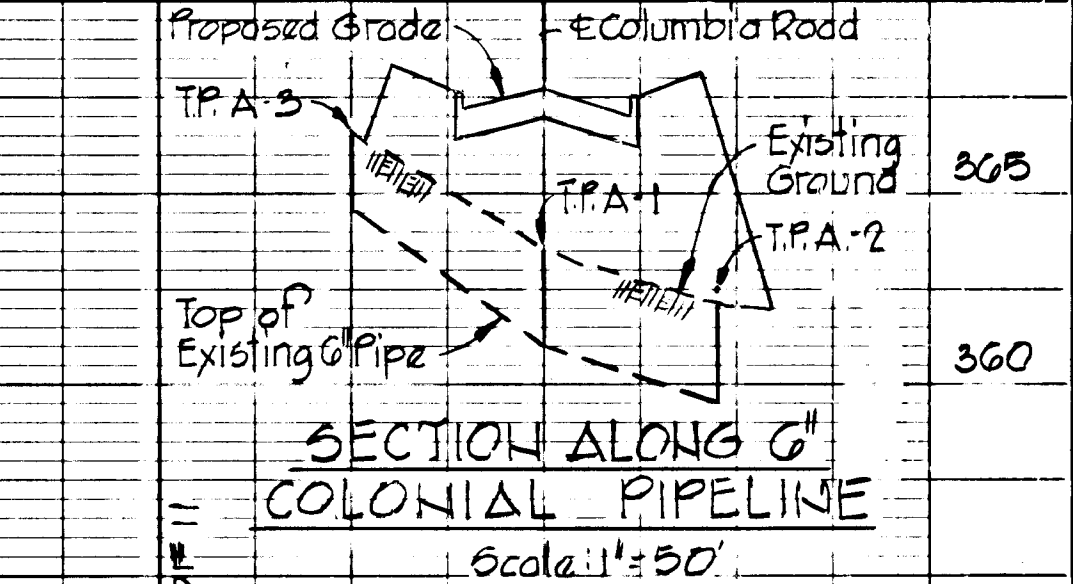 Proposed Grade
℄ Columbia Road
T.P. A-3
Existing
Ground
365
T.P. A-1
T.P. A.-2
Top of
Existing 6" Pipe
360
SECTION ALONG 6"
COLONIAL PIPELINE
Scale: 1" = 50'